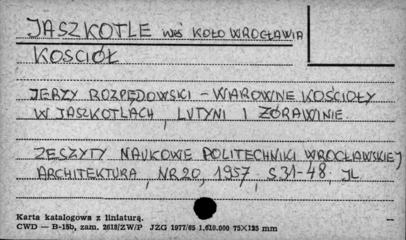 JASZKOTLE WEŚ KOŁO WROCŁAWIA
KOŚCIÓŁ
JERZY ROZPĘDOWSKI – WAROWNE KOŚCIOŁY
W JASZKOTLACH, LUTYNI I ŻÓRAWINIE.
ZESZYTY NAUKOWE POLITECHNIKI WROCŁAWSKIEJ
ARCHITEKTURA, NR 20, 1957, S 31-48. JL
Karta katalogowa z liniaturą.
CWD — B-15b, zam. 2618/ZW/P JZG 1977/65 1.610.000 75×125 mm